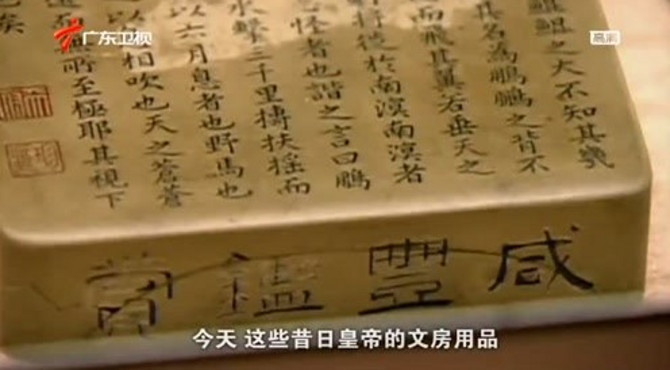 广东卫视
高清
鯤鯤之大不知其幾
其名為鵬鵬之背不
而飛其翼若垂天之
將徙於南溟南溟者
怪者也諧之言曰鵬
水擊三千里摶扶搖而
以六月息者也野馬也
相吹也天之蒼蒼
所至極耶其視下
矣
咸豐鑑賞
今天 这些昔日皇帝的文房用品